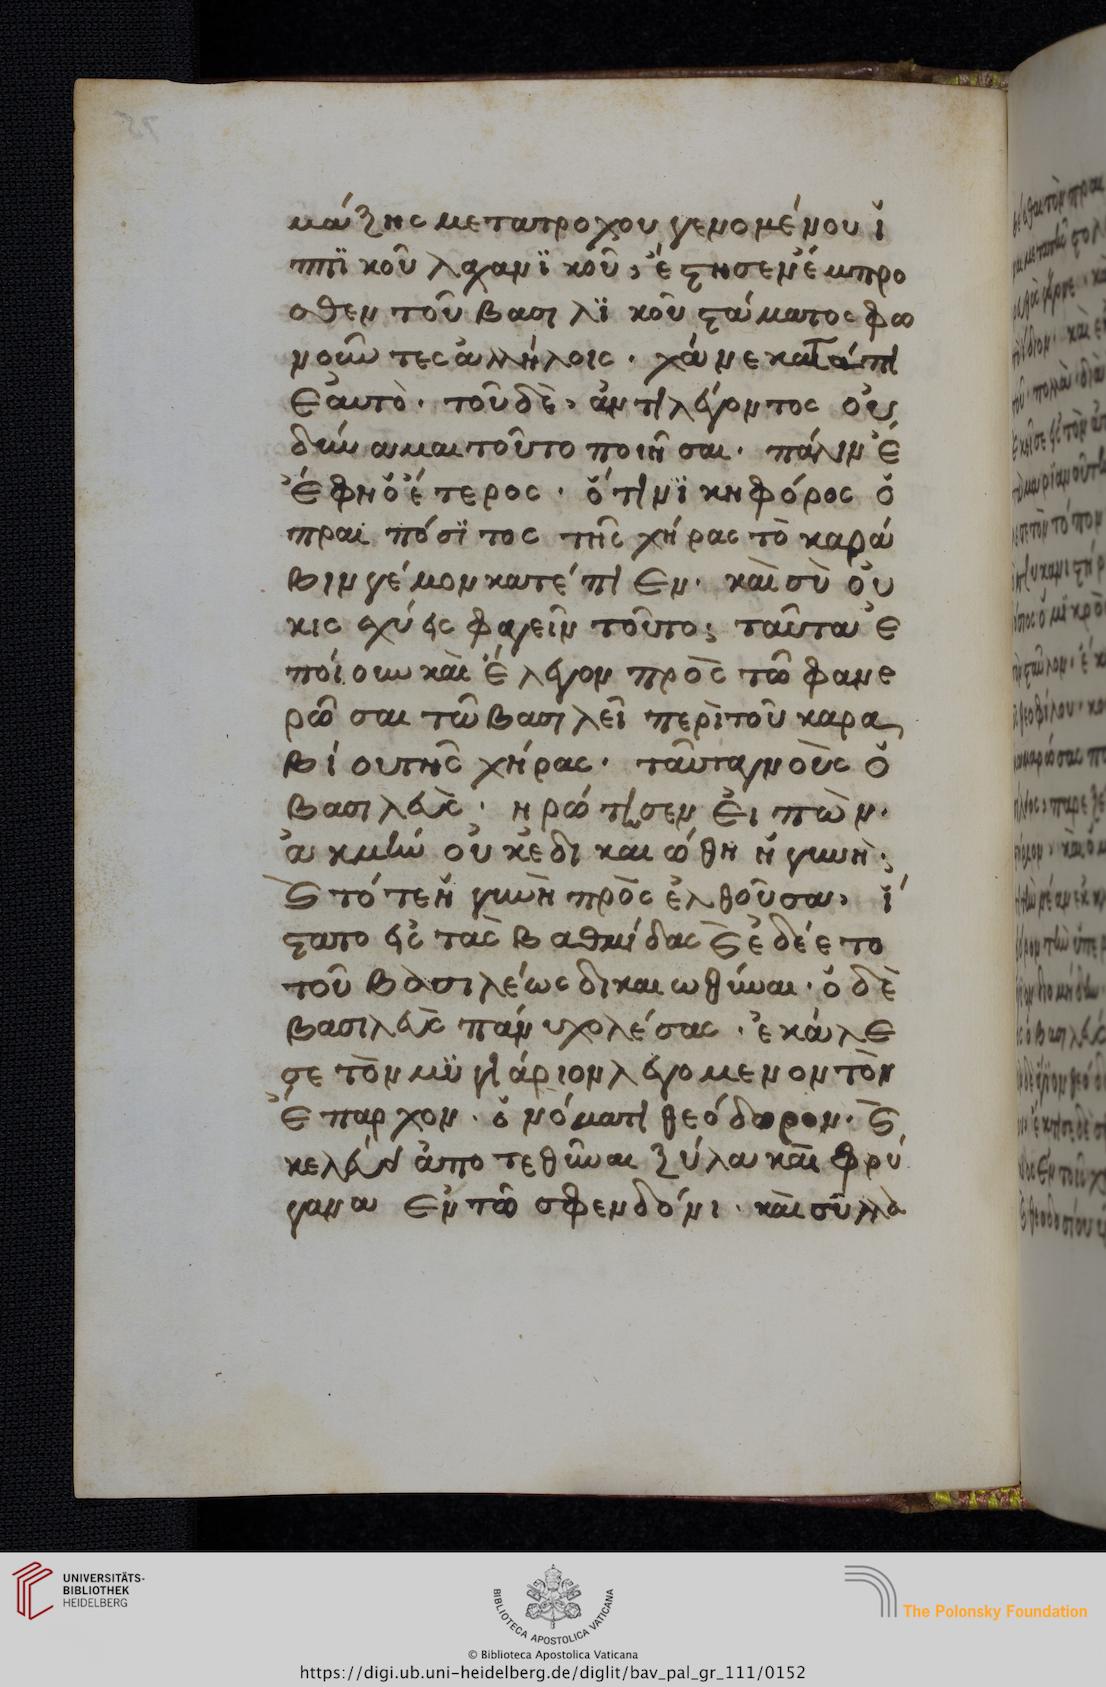 μάξης μετατροχου γενομένου ἵ
ππϊκοῦ λαχανϊκοῦ, ἔστησεν ἔμπρο
σθεν τοῦ βασιλϊκοῦ στάματος φω
νοῦντες ἀλλήλοις · χάνε κατάπι
ε αὐτὸ · τοῦ δὲ, ἀντιλέγοντος οὐ
δύναμαι τοῦτο ποιῆσαι · πάλιν ἔ
ἔφη ὁ ἕτερος · ὅτι νϊκηφόρος ὁ
πραιπόσϊτος τῆς χήρας τὸ καρά
βιν γέμον κατέπιεν · καὶ σὺ οὐ
κισχύεις φαγεῖν τοῦτο; ταῦτα ἐ
ποίουν καὶ ἔλεγον πρὸς τῶ φανε
ρῶσαι τῶ βασιλεῖ περὶ τοῦ καρα
βίου τῆς χήρας · ταῦτα γνοὺς ὁ
βασιλεὺς · ηρώτισεν εἰπὼν ·
ἀκμὴν οὐκ ἐδικαιώθη ἡ γυνὴ;
ϗ τότε ἡ γυνὴ πρὸς ἐλθοῦσα, ἵ
στατο εἰς τὰς βαθμίδας ϗ ἐδέετο
τοῦ βασιλέως δικαιωθῆναι · ὁ δὲ
βασιλεὺς πάνυ χολέσας · ἐκάλε
σε τὸν μϋγιάριον λεγομενον τὸν
ἔπαρχον · ὀνόματι θεόδωρον · ϗ
κελεύει ἀποτεθῆναι ξύλα καὶ φρύ
γανα ἐν τῶ σφενδόνι · καὶ συλλα
75
UNIVERSITÄTS-
BIBLIOTHEK
HEIDELBERG
BIBLIOTECA APOSTOLICA VATICANA
The Polonsky Foundation
© Biblioteca Apostolica Vaticana
https://digi.ub.uni-heidelberg.de/diglit/bav_pal_gr_111/0152